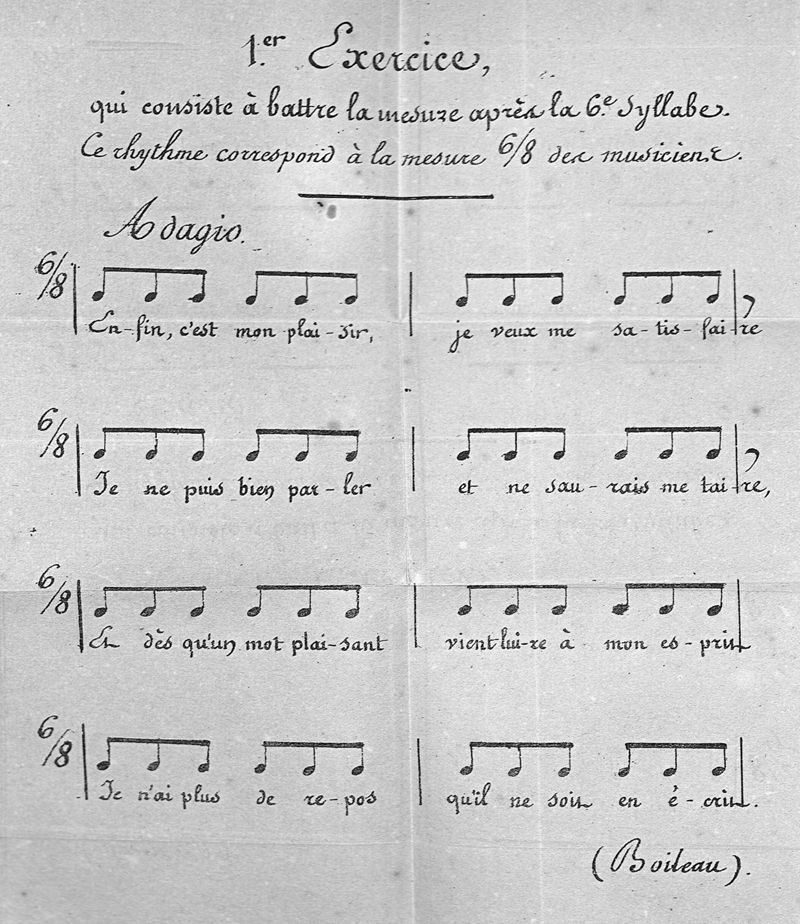 1.er Exercice,
qui consiste à battre la mesure après la 6.e Syllabe.
Ce rhythme correspond à la mesure 6/8 des musiciens.
Adagio.
6/8
En-fin, c'est mon plai-sir, je veux me sa-tis-fai-re
6/8
Je ne puis bien par-ler et ne sau-rais me tai-re,
6/8
Et dès qu'un mot plai-sant vient lui-re à mon es-prit
6/8
Je n'ai plus de re-pos qu'il ne soit en é-crit.
(Boileau).